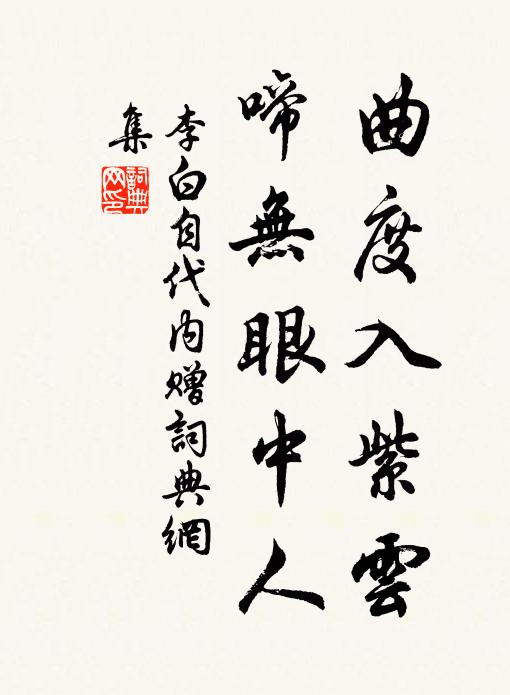 曲度入紫雲
啼無眼中人
李白自代内贈詞典網
集
詞典
网印